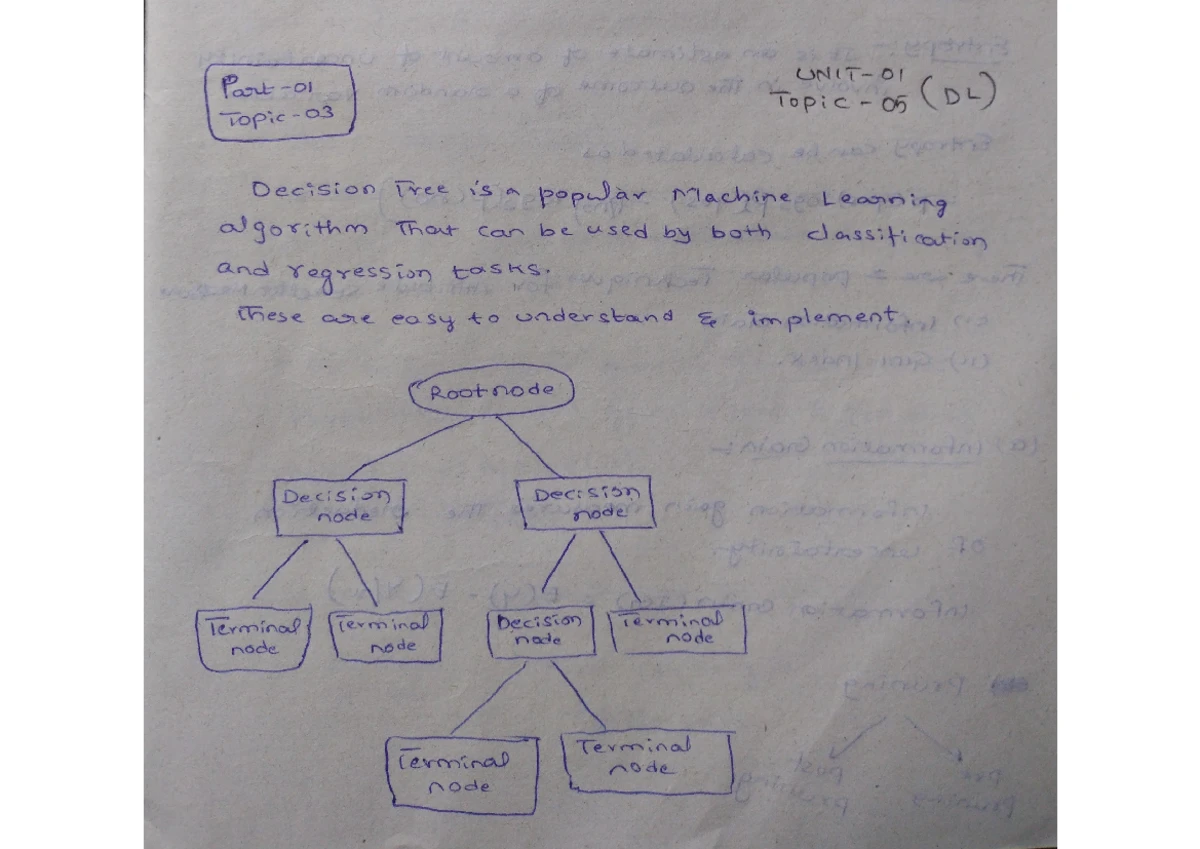 Part-01
Topic-03
UNIT-01
Topic-05 (DL)
Decision Tree is a popular Machine Learning
algorithm That can be used by both classification
and regression tasks.
These are easy to understand & implement.
Root node
Decision
node
Decision
node
Terminal
node
Terminal
node
Decision
node
Terminal
node
Terminal
node
Terminal
node